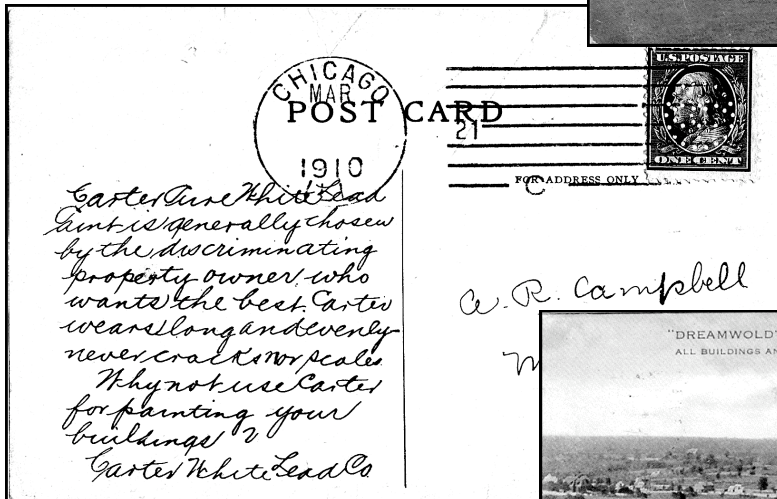 U.S. POSTAGE
ONE CENT
CHICAGO
MAR
21
1910
POST CARD
FOR ADDRESS ONLY
C
Carter Pure White Lead
Paint is generally chosen
by the discriminating
property owner who
wants the best. Carter
wears long and evenly
never cracks nor scales.
Why not use Carter
for painting your
buildings?
Carter White Lead Co.
A. R. Campbell
"DREAMWOLD"
ALL BUILDINGS AN